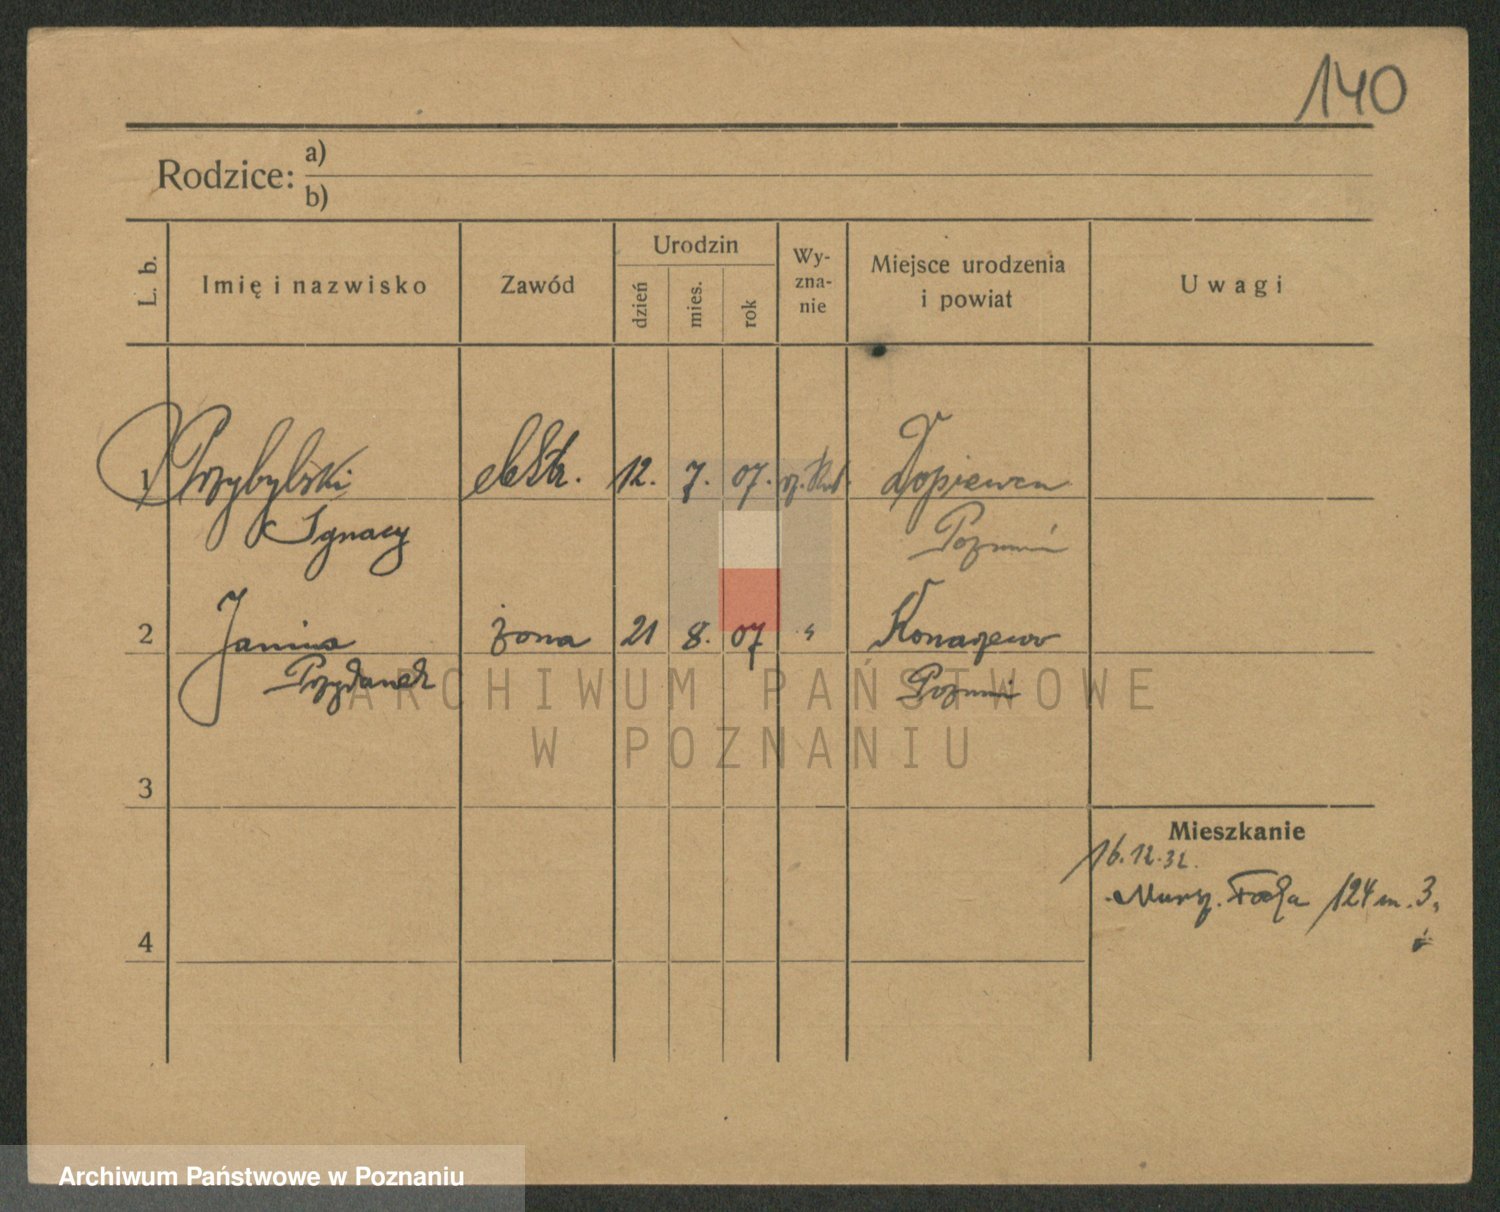 140
Rodzice: a)
b)
L. b. Imię i nazwisko Zawód Urodzin dzień mies. rok Wy-zna-nie Miejsce urodzenia i powiat Uwagi
1 Przybylski elektr. 12. 7. 07. rz. kat. Dopiewca
Ignacy Poznań
2 Janina żona 21 8. 07 " Konarzewo
Poznań
3
4
Mieszkanie
16.12.32.
Marsz. Focha 124 m. 3.
ARCHIWUM PAŃSTWOWE
W POZNANIU
Archiwum Państwowe w Poznaniu